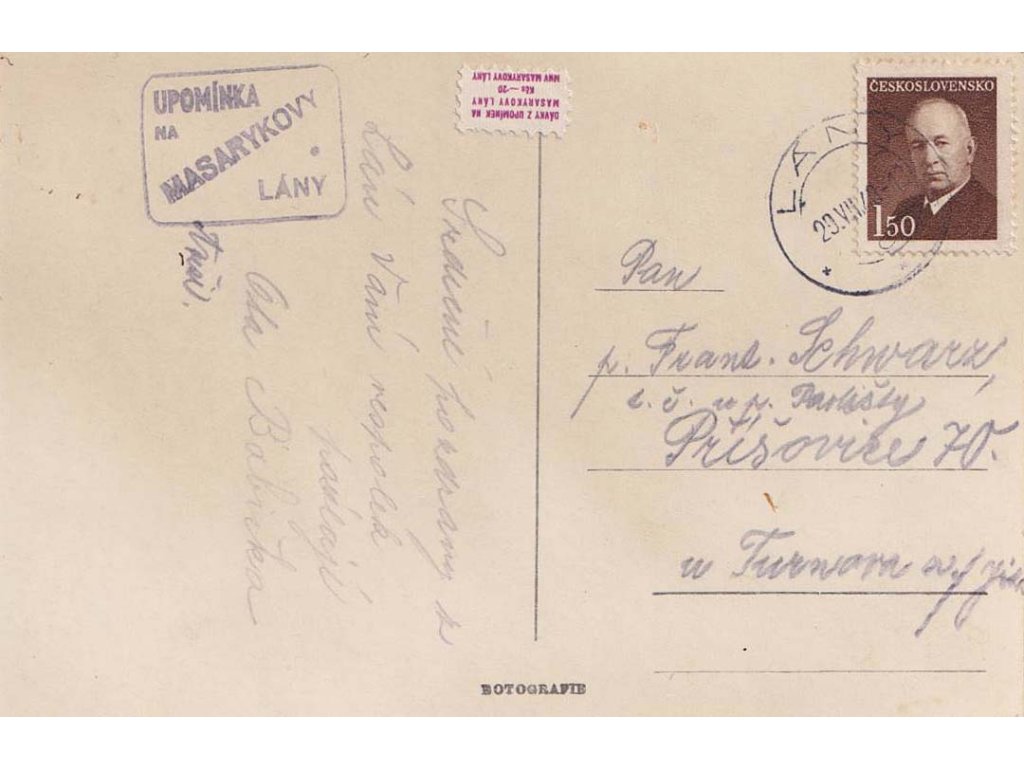 UPOMÍNKA
NA
MASARYKOVY
LÁNY
DÁVKY Z UPOMÍNEK NA
MASARYKOVY LÁNY
Kčs —20
MNV MASARYKOVY LÁNY
ČESKOSLOVENSKO
150
LÁNY
Srdečné pozdravy z
Lán Vám
Ola Babička
Pan
p. Frant. Schwarz,
t. č. u p.
Příšovice 70.
u Turnova
BOTOGRAFIE